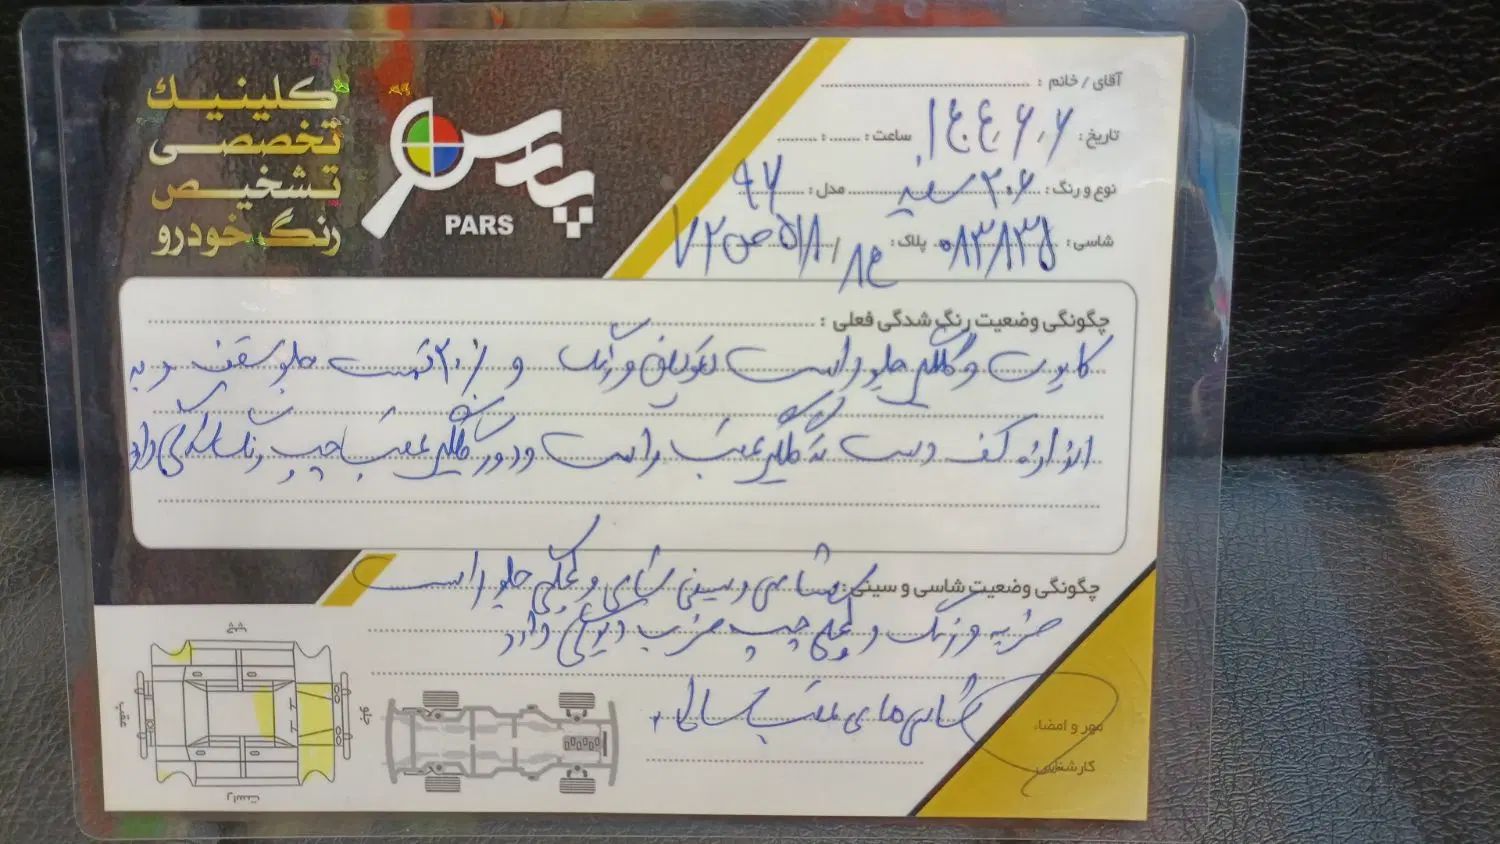 کلینیک
تخصصی
تشخیص
رنگ خودرو
پارس
PARS
آقای / خانم :
تاریخ : ۱۴۰۴٫۶٫۲ ساعت : ...... : ......
نوع و رنگ : ۲۰۶ سفید مدل : ۹۷
شاسی : ۰۸۳۸۳۵ پلاک :
چگونگی وضعیت رنگ شدگی فعلی :
کاپوت و گلگیر جلو راست تعویض و رنگ و ۲۰٪ قسمت جلو سقف و به
اندازه کف دست ته گلگیر عقب راست و دور گلگیر عقب چپ رنگ شدگی دارد
چگونگی وضعیت شاسی و سینی :
سرشاسی و سینی شاسی و جلو راست
ضربه و رنگ و چپ ضرب دارد
شاسی های عقب سالم
مهر و امضاء
کارشناس
چپ
عقب
جلو
راست